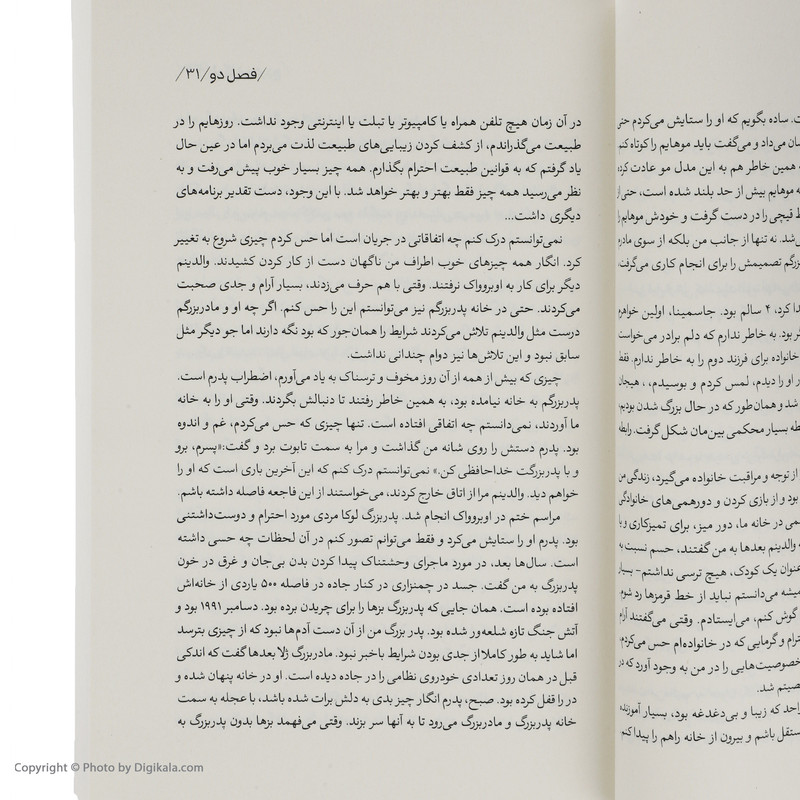 /فصل دو/۳۱/
در آن زمان هیچ تلفن همراه یا کامپیوتر یا تبلت یا اینترنتی وجود نداشت. روزهایم را در
طبیعت می‌گذراندم، از کشف کردن زیبایی‌های طبیعت لذت می‌بردم اما در عین حال
یاد گرفتم که به قوانین طبیعت احترام بگذارم. همه چیز بسیار خوب پیش می‌رفت و به
نظر می‌رسید همه چیز فقط بهتر و بهتر خواهد شد. با این وجود، دست تقدیر برنامه‌های
دیگری داشت...
نمی‌توانستم درک کنم چه اتفاقاتی در جریان است اما حس کردم چیزی شروع به تغییر
کرد. انگار همه چیزهای خوب اطراف من ناگهان دست از کار کردن کشیدند. والدینم
دیگر برای کار به اوبرواک نرفتند. وقتی با هم حرف می‌زدند، بسیار آرام و جدی صحبت
می‌کردند. حتی در خانه پدربزرگم نیز می‌توانستم این را حس کنم. اگر چه او و مادربزرگم
درست مثل والدینم تلاش می‌کردند شرایط را همان‌جور که بود نگه دارند اما جو دیگر مثل
سابق نبود و این تلاش‌ها نیز دوام چندانی نداشت.
چیزی که بیش از همه از آن روز مخوف و ترسناک به یاد می‌آورم، اضطراب پدرم است.
پدربزرگم به خانه نیامده بود، به همین خاطر رفتند تا دنبالش بگردند. وقتی او را به خانه
ما آوردند، نمی‌دانستم چه اتفاقی افتاده است. تنها چیزی که حس می‌کردم، غم و اندوه
بود. پدرم دستش را روی شانه من گذاشت و مرا به سمت تابوت برد و گفت:«پسرم، برو
و با پدربزرگت خداحافظی کن.» نمی‌توانستم درک کنم که این آخرین باری است که او را
خواهم دید. والدینم مرا از اتاق خارج کردند، می‌خواستند از این فاجعه فاصله داشته باشم.
مراسم ختم در اوبروواک انجام شد. پدربزرگ لوکا مردی مورد احترام و دوست‌داشتنی
بود. پدرم او را ستایش می‌کرد و فقط می‌توانم تصور کنم در آن لحظات چه حسی داشته
است. سال‌ها بعد، در مورد ماجرای وحشتناک پیدا کردن بدن بی‌جان و غرق در خون
پدربزرگ به من گفت. جسد در چمنزاری در کنار جاده در فاصله ۵۰۰ یاردی از خانه‌اش
افتاده بوده است. همان جایی که پدربزرگ بزها را برای چریدن برده بود. دسامبر ۱۹۹۱ بود و
آتش جنگ تازه شعله‌ور شده بود. پدر بزرگ من از آن دست آدم‌ها نبود که از چیزی بترسد
اما شاید به طور کاملا از جدی بودن شرایط باخبر نبود. مادربزرگ ژلا بعدها گفت که اندکی
قبل در همان روز تعدادی خودروی نظامی را در جاده دیده است. او در خانه پنهان شده و
در را قفل کرده بود. صبح، پدرم انگار چیز بدی به دلش برات شده باشد، با عجله به سمت
خانه پدربزرگ و مادربزرگ می‌رود تا به آنها سر بزند. وقتی می‌فهمد بزها بدون پدربزرگ به
ساده بگویم که او را ستایش می‌کردم حتی
می‌داد و می‌گفت باید موهایم را کوتاه کنم
همین خاطر هم به این مدل مو عادت کرده
موهایم بیش از حد بلند شده است، حتی از
قیچی را در دست گرفت و خودش موهایم را
نه تنها از جانب من بلکه از سوی مادرم
تصمیمش را برای انجام کاری می‌گرفت،
کرد، ۴ سالم بود. جاسمینا، اولین خواهرم
بود. به خاطر ندارم که دلم برادر می‌خواست
خانواده برای فرزند دوم را به خاطر ندارم. فقط
او را دیدم، لمس کردم و بوسیدم، ، هیجان
شد و همان‌طور که در حال بزرگ شدن بودیم،
بسیار محکمی بین‌مان شکل گرفت. رابطه
از توجه و مراقبت خانواده می‌گیرد، زندگی من
بود و از بازی کردن و دورهمی‌های خانوادگی
در خانه ما، دور میز، برای تمیزکاری و یا
والدینم بعدها به من گفتند، حسم نسبت به
عنوان یک کودک، هیچ ترسی نداشتم- بسیار
می‌دانستم نباید از خط قرمزها رد شوم.
گوش کنم، می‌ایستادم. وقتی می‌گفتند آرام
و گرمایی که در خانواده‌ام حس می‌کردم،
خصوصیت‌هایی را در من به وجود آورد که در
شد.
که زیبا و بی‌دغدغه بود، بسیار آموزنده
باشم و بیرون از خانه راهم را پیدا کنم.
Copyright © Photo by Digikala.com